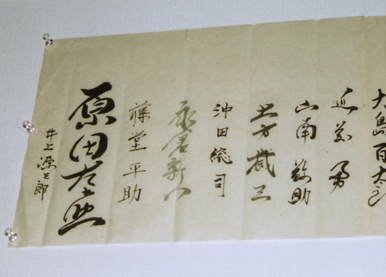 大島百太郎
近藤勇
山南敬助
土方歳三
沖田総司
永倉新八
藤堂平助
原田左之助
井上源三郎